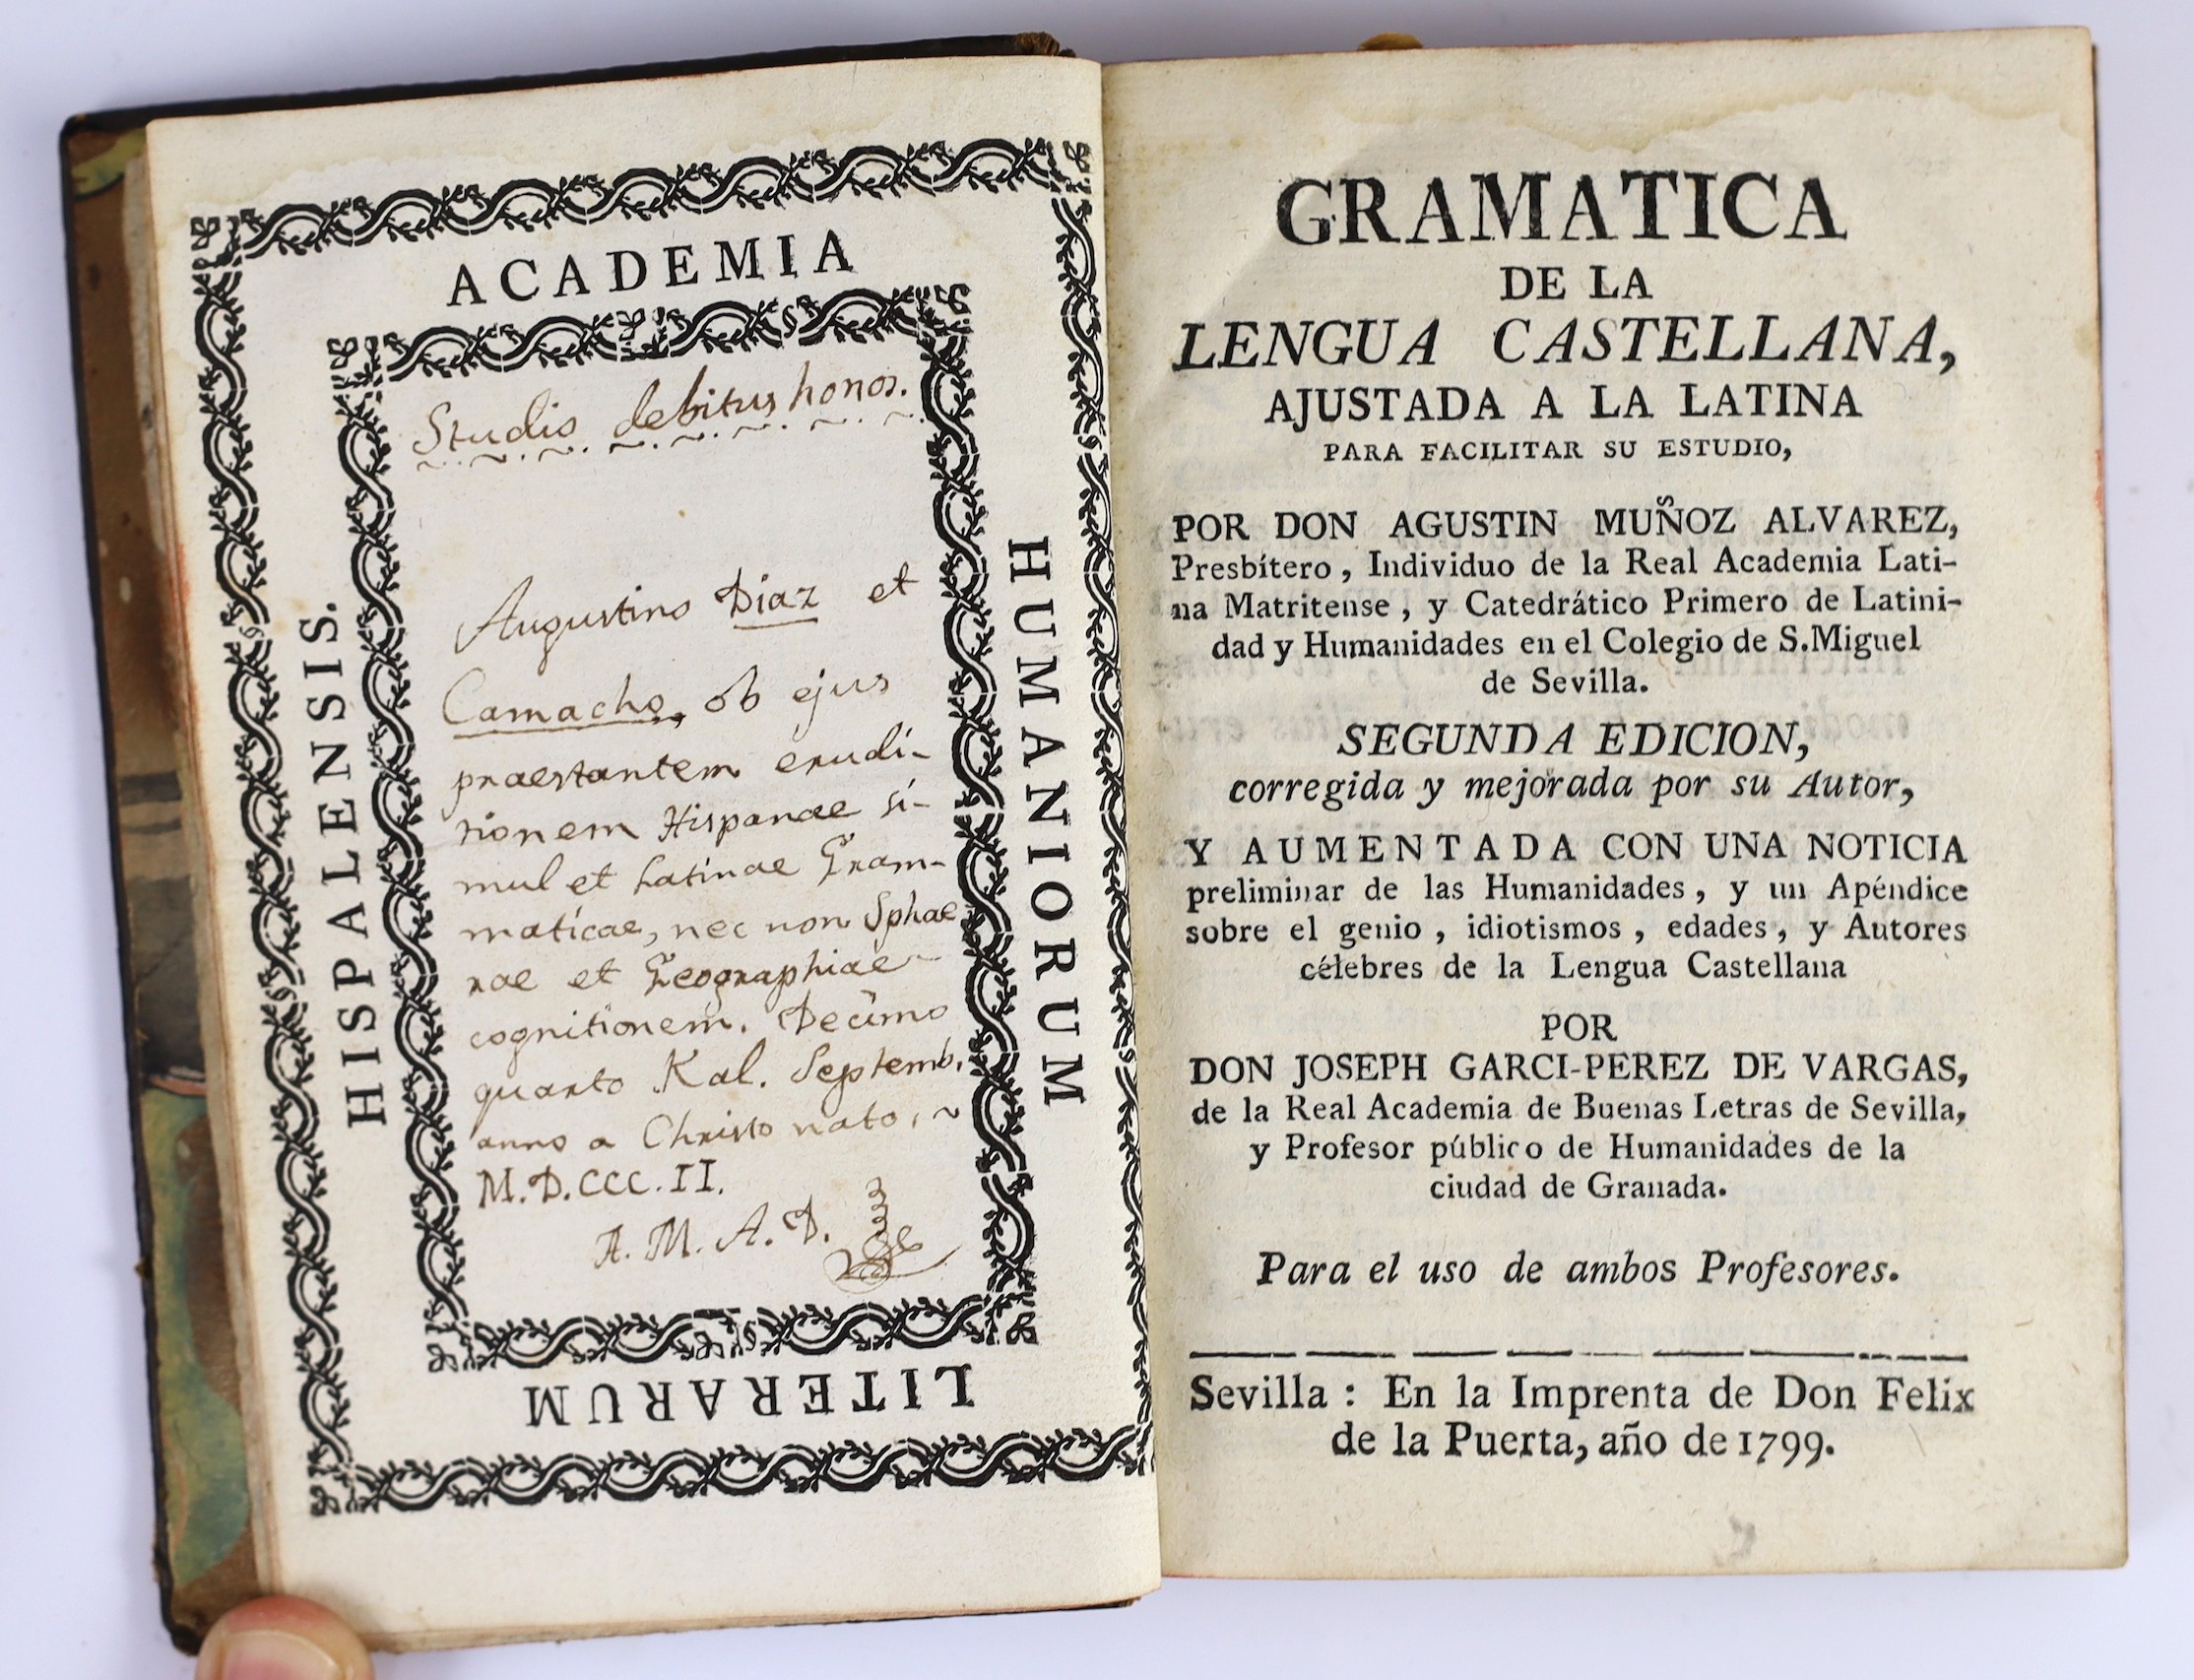 ACADEMIA
HUMANIORUM
LITERARUM
HISPALENSIS.
Studio debitus honos.
Augustino Diaz et
Camacho, ob ejus
praestantem erudi-
tionem Hispanae si-
mul et Latinae Gram-
maticae, nec non Sphae
rae et Geographiae
cognitionem. Decimo
quarto Kal. Septemb.
anno a Christo nato,
M.D.CCC.II.
A. M. A. D.
GRAMATICA
DE LA
LENGUA CASTELLANA,
AJUSTADA A LA LATINA
PARA FACILITAR SU ESTUDIO,
POR DON AGUSTIN MUÑOZ ALVAREZ,
Presbítero, Individuo de la Real Academia Lati-
na Matritense, y Catedrático Primero de Latini-
dad y Humanidades en el Colegio de S.Miguel
de Sevilla.
SEGUNDA EDICION,
corregida y mejorada por su Autor,
Y AUMENTADA CON UNA NOTICIA
preliminar de las Humanidades, y un Apéndice
sobre el genio, idiotismos, edades, y Autores
célebres de la Lengua Castellana
POR
DON JOSEPH GARCI-PEREZ DE VARGAS,
de la Real Academia de Buenas Letras de Sevilla,
y Profesor público de Humanidades de la
ciudad de Granada.
Para el uso de ambos Profesores.
Sevilla: En la Imprenta de Don Felix
de la Puerta, año de 1799.